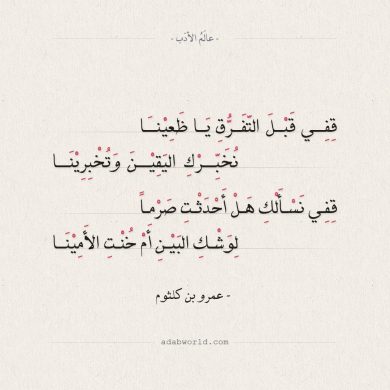 - عالَمُ الأدَب -
قِفِــي قَبْـلَ التّفَـرُّقِ يَـا ظَعِيْنَـا
نُخَبِّــرْكِ اليَقِيْــنَ وَتُخْبِرِيْنَــا
قِفِي نَسْـأَلْكِ هَـلْ أَحْدَثْـتِ صَرْمـاً
لِوَشْـكِ البَيْـنِ أَمْ خُنْـتِ الأَمِيْنَـا
- عمرو بن كلثوم
adabworld.com